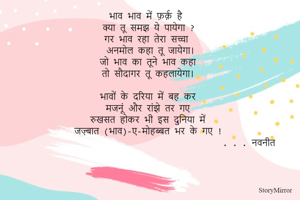 भाव भाव में फ़र्क़ है
क्या तू समझ ये पायेगा ?
गर भाव रहा तेरा सच्चा
अनमोल कहा तू जायेगा।
जो भाव का तूने भाव कहा
तो सौदागर तू कहलायेगा।
भावों के दरिया में बह कर
मजनूं और रांझे तर गए
रुखसत होकर भी इस दुनिया में
जज़्बात (भाव)-ए-मोहब्बत भर के गए !
. . . नवनीत
StoryMirror